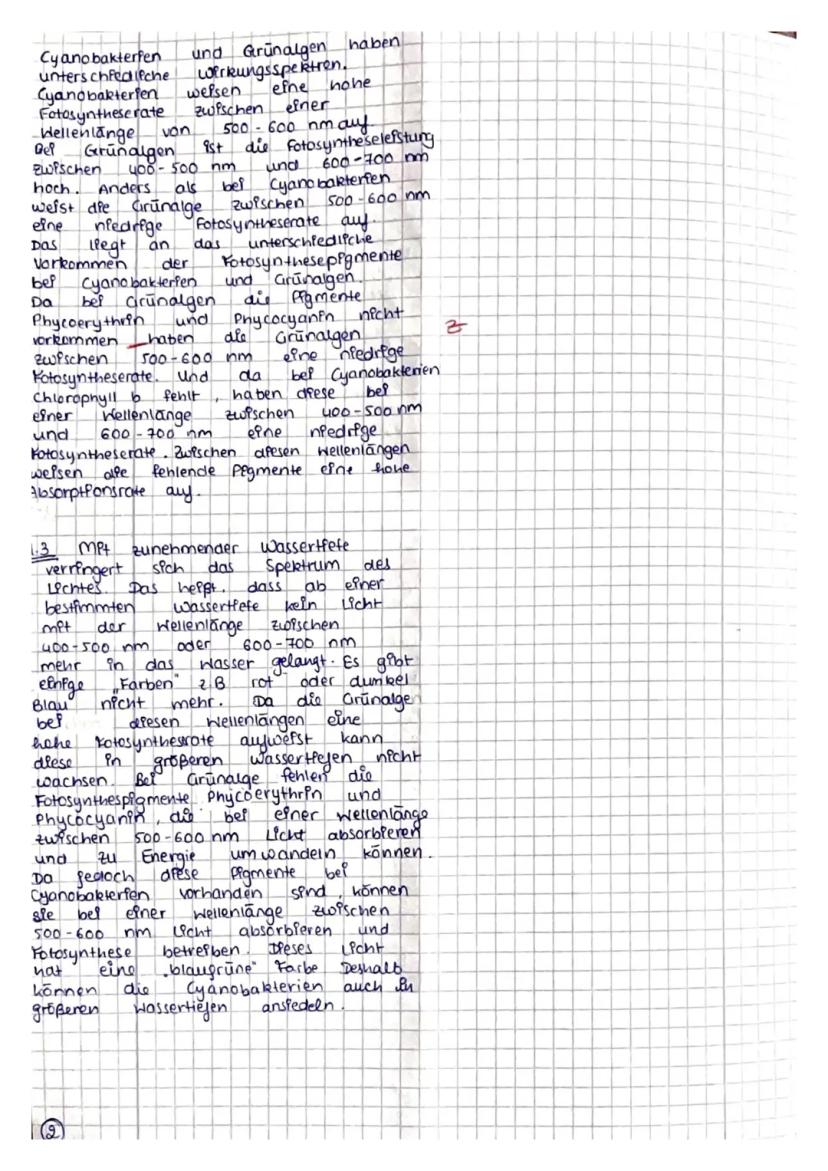 Cyanobakterien und Grünalgen haben
unterschiedliche Wirkungsspektren.
Cyanobakterien weisen eine hohe
Fotosyntheserate zwischen einer
Wellenlänge von 500-600 nm auf
Bei Grünalgen ist die Fotosyntheseleistung
zwischen 400-500 nm und 600-700 nm
hoch. Anders als bei Cyanobakterien
weist die Grünalge zwischen 500-600 nm
eine niedrige Fotosyntheserate auf.
Das liegt an das unterschiedliche
Vorkommen der Fotosynthesepigmente
bei Cyanobakterien und Grünalgen.
Da bei Grünalgen die Pigmente
Phycoerythrin und Phycocyanin nicht
vorkommen haben die Grünalgen
zwischen 500-600 nm eine niedrige
Fotosyntheserate. Und da bei Cyanobakterien
Chlorophyll b fehlt, haben diese bei
einer Wellenlänge zwischen 400-500 nm
und 600-700 nm eine niedrige
Fotosyntheserate. Zwischen diesen Wellenlängen
weisen die fehlende Pigmente eine hohe
Absorptionsrate auf.
1.3 Mit zunehmender Wassertiefe
verringert sich das Spektrum des
Lichtes. Das heißt, dass ab einer
bestimmten Wassertiefe kein Licht
mit der Wellenlänge zwischen
400-500 nm oder 600-700 nm
mehr in das Wasser gelangt. Es gibt
einige „Farben" z.B rot oder dunkel
Blau nicht mehr. Da die Grünalge
bei diesen Wellenlängen eine
hohe Fotosynthesrate aufweist kann
diese in größeren Wassertiefen nicht
wachsen. Bei Grünalge fehlen die
Fotosynthespigmente Phycoerythrin und
Phycocyanin, die bei einer Wellenlänge
zwischen 500-600 nm Licht absorbieren
und zu Energie umwandeln können.
Da jedoch diese Pigmente bei
Cyanobakterien vorhanden sind, können
sie bei einer Wellenlänge zwischen
500-600 nm Licht absorbieren und
Fotosynthese betreiben. Dieses Licht
hat eine „blaugrüne" Farbe Deshalb
können die Cyanobakterien auch in
größeren Wassertiefen ansiedeln.
2